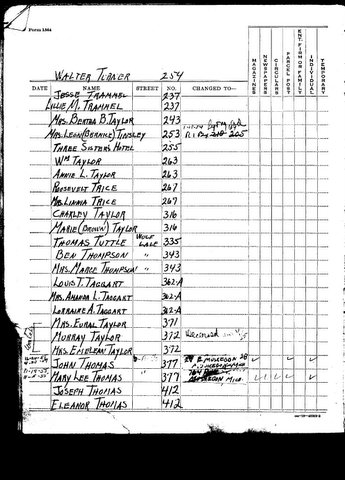 Form 1564
MAGAZINES
NEWSPAPERS
CIRCULARS
PARCEL POST
ENT. FIRM OR FAMILY
INDIVIDUAL
TEMPORARY
WALTER TURNER 254
DATE NAME STREET NO. CHANGED TO—
JESSE TRAMMEL 237
LILLIE M. TRAMMEL 237
MRS. BERTHA B. TAYLOR 243
MRS. LEON (BERNICE) TINSLEY 253 205
THREE SISTERS HOTEL 255
WM TAYLOR 263
ANNIE L. TAYLOR 263
ROOSEVELT TRICE 267
MRS. LINNIA TRICE 267
CHARLEY TAYLOR 316
MARIE (BROWN) TAYLOR 316
THOMAS TUTTLE WOLF LAKE 335
BEN THOMPSON " 343
MRS. MARGE THOMPSON " 343
LOUIS T. TAGGART 362-A
MRS. AMANDA L. TAGGART 362-A
LORRAINE A. TAGGART 362-A
MRS. EURAL TAYLOR 371
MURRAY TAYLOR 372 Deceased
MRS. EMELEAN TAYLOR 372
JOHN THOMAS 377 E. MUSKEGON
MARY LEE THOMAS " 377 MUSKEGON MICH.
JOSEPH THOMAS 412
ELEANOR THOMAS 412